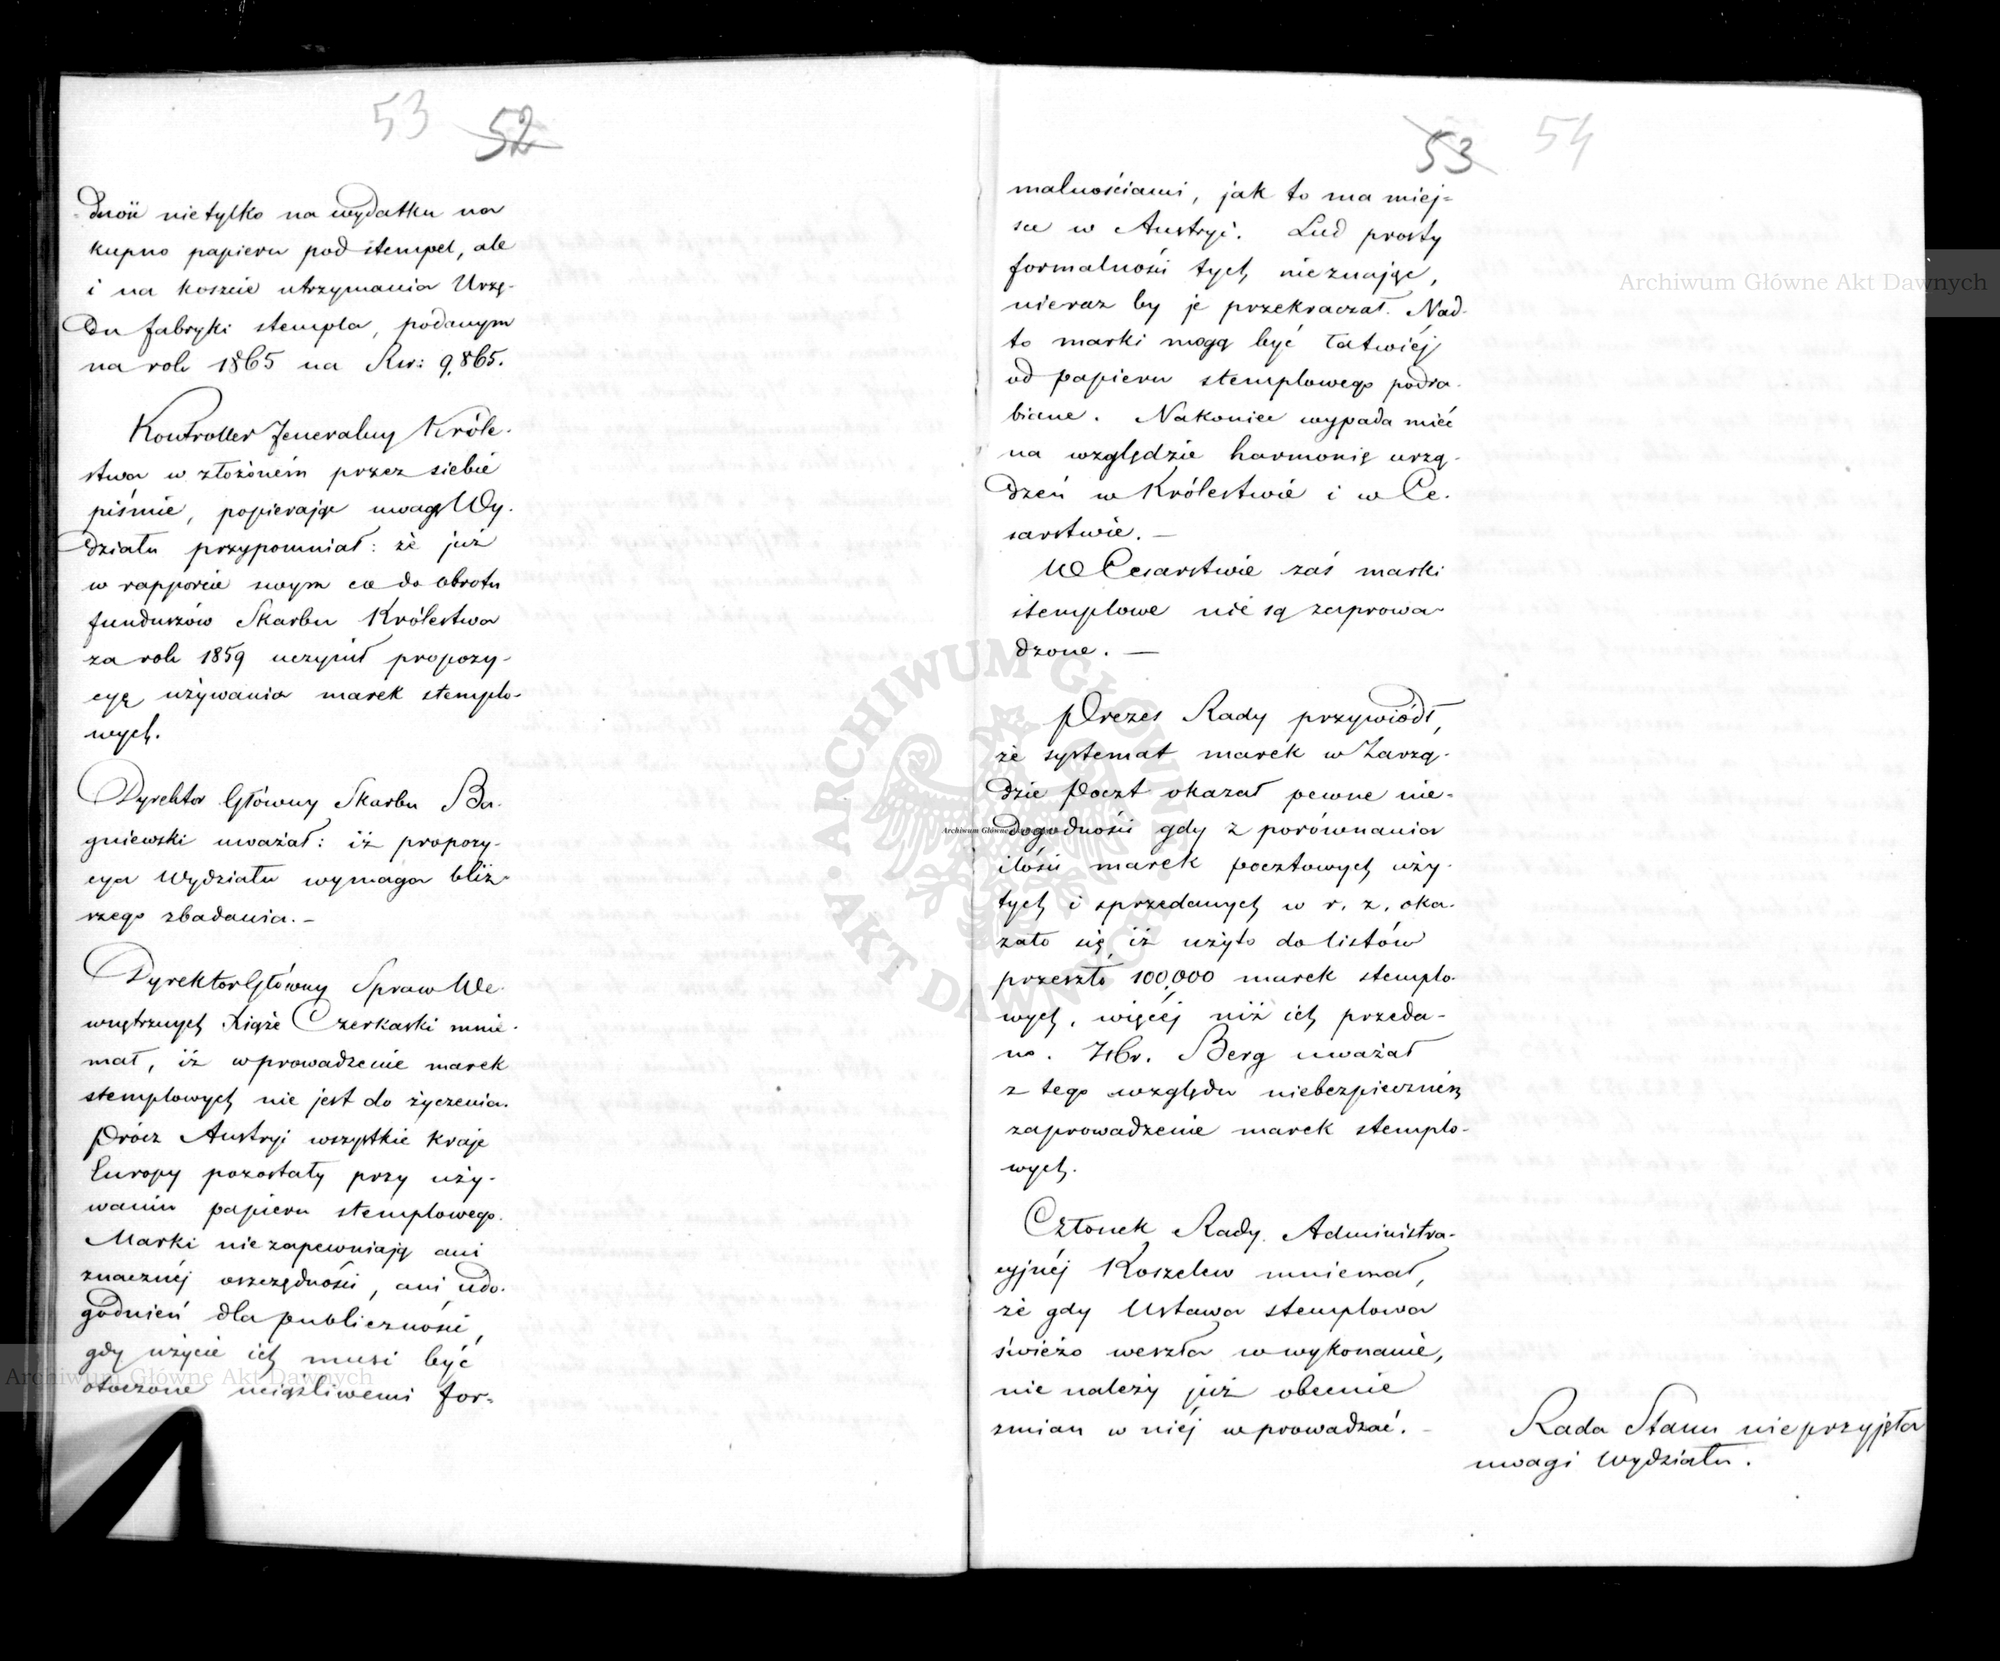 53 52
dność nietylko na wydatku na
kupno papieru pod stempel, ale
i na koszcie utrzymania Urzę-
du fabryki stempla, podanym
na rok 1865 na Rsr: 9,865.
Kontroller Jeneralny Króle-
stwa w złożoném przez siebie
piśmie, popierając uwagę Wy-
działu przypomniał: że już
w rapporcie swym co do obrotu
funduszów Skarbu Królestwa
za rok 1859 uczynił propozy-
cyę używania marek stemplo-
wych.
Dyrektor Główny Skarbu Ba-
gniewski uważał: iż propozy-
cya Wydziału wymaga bliż-
szego zbadania. –
Dyrektor Główny Spraw We-
wnętrznych Xiąże Czerkaski mnie-
mał, iż wprowadzenie marek
stemplowych nie jest do życzenia.
Prócz Austryi wszystkie kraje
Europy pozostały przy uży-
waniu papieru stemplowego.
Marki nie zapewniają ani
znacznéj oszczędności, ani udo-
godnień dla publiczności,
gdy użycie ich musi być
otoczone uciążliwemi for-
53 54
malnościami, jak to ma miej-
sce w Austryi. Lud prosty
formalności tych nieznając,
nieraz by je przekraczał. Nad-
to marki mogą być łatwiéj
od papieru stemplowego podra-
biane. Nakoniec wypada mieć
na względzie harmonię urzą-
dzeń w Królestwie i w Ce-
sarstwie. –
W Cesarstwie zaś marki
stemplowe nie są zaprowa-
dzone. –
Prezes Rady przywiódł,
że systemat marek w Zarzą-
dzie Poczt okazał pewne nie-
dogodności gdy z porównania
ilości marek pocztowych uży-
tych i sprzedanych w r. z. oka-
zało się, iż użyto do listów
przeszło 100,000 marek stemplo-
wych, więcéj niż ich przeda-
no. Hr. Berg uważał
z tego względu niebezpieczném
zaprowadzenie marek stemplo-
wych.
Członek Rady Administra-
cyjnéj Koszelew mniemał,
że gdy Ustawa stemplowa
świeżo weszła w wykonanie,
nie należy już obecnie
zmian w niéj wprowadzać. –
Rada Stanu nie przyjęła
uwagi Wydziału.
Archiwum Główne Akt Dawnych
Archiwum Główne Akt Dawnych
ARCHIWUM GŁÓWNE · AKT DAWNYCH ·